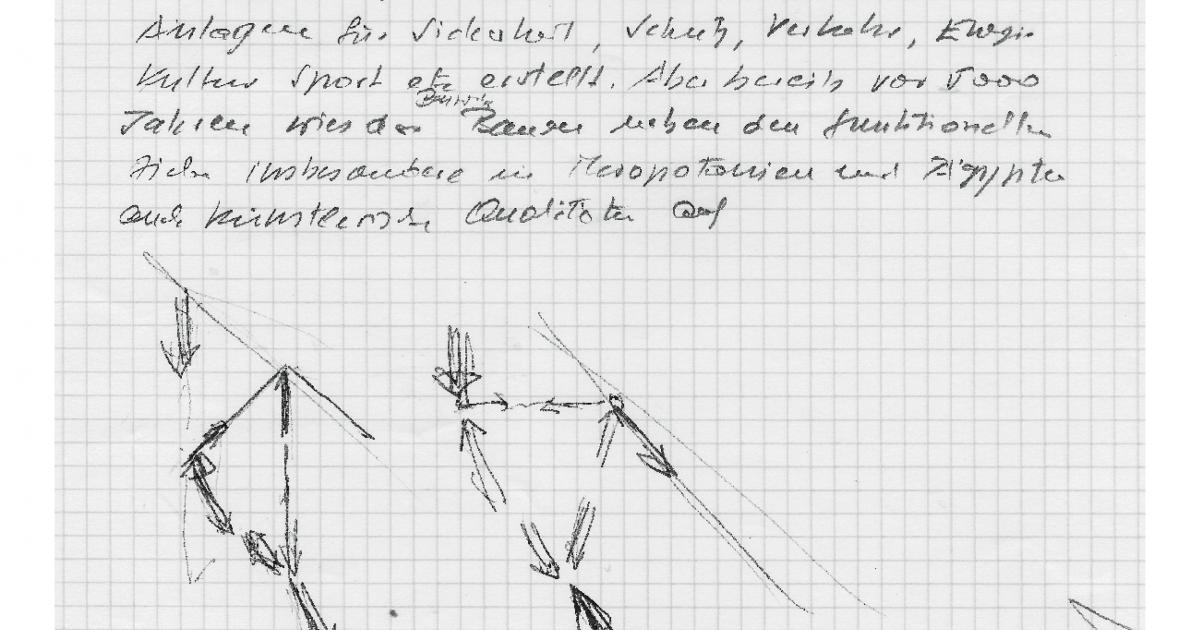 Anlagen für Sicherheit, Schutz, Verkehr, Energie
Kultur Sport etc erstellt. Aber bereits vor 5000
Jahren wies das Bauen neben den funktionellen
Zielen insbesondere in Mesopotamien und Ägypten
auch künstlerische Qualitäten auf